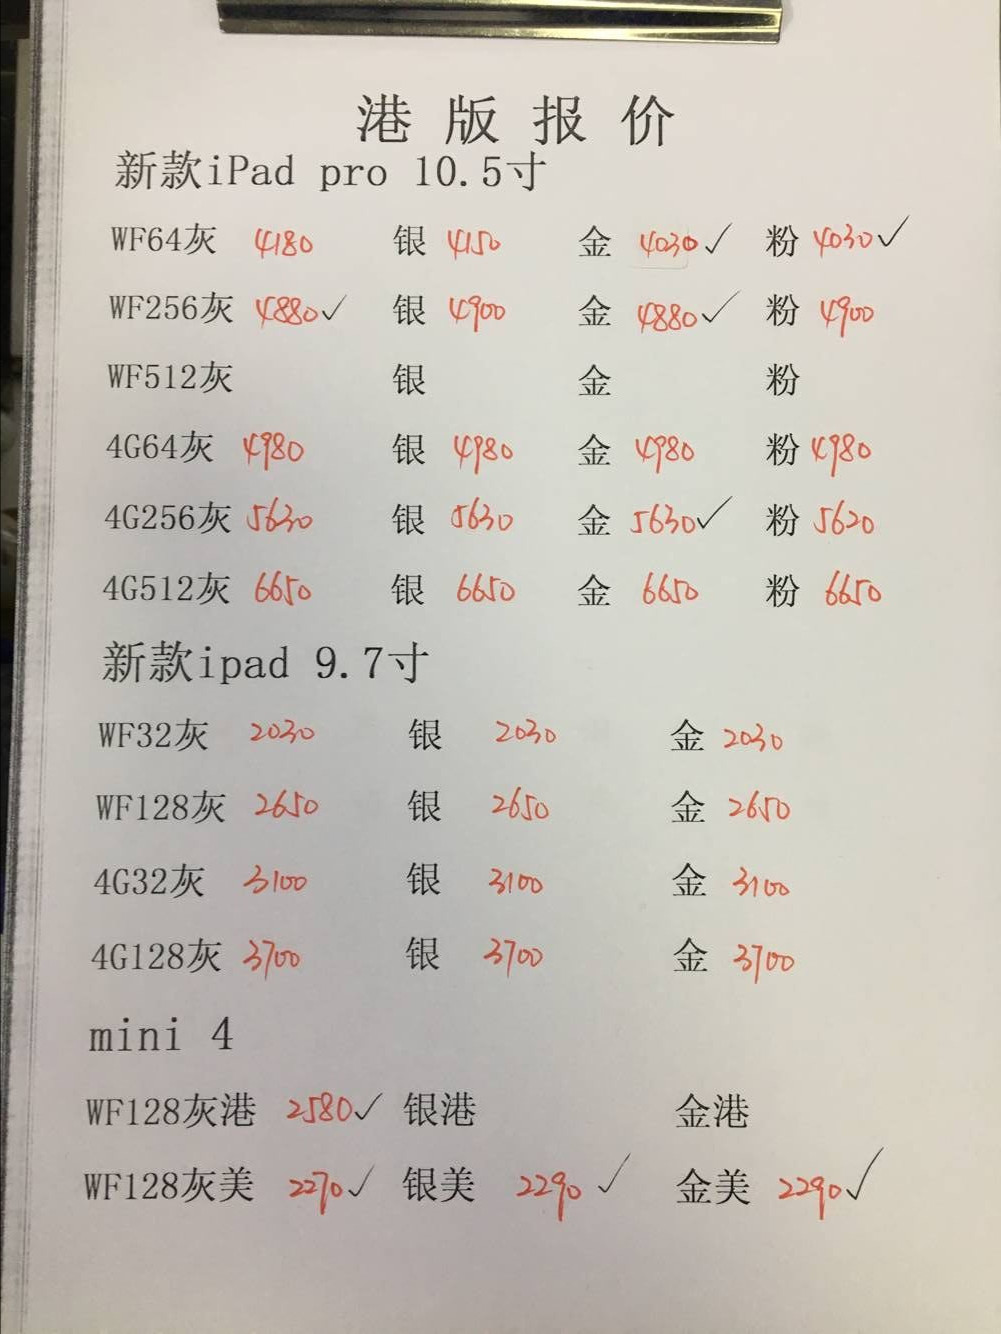 港版报价
新款iPad pro 10.5寸
WF64灰 4180 银 4150 金 4030✓ 粉 4030✓
WF256灰 4880✓ 银 4900 金 4880✓ 粉 4900
WF512灰 银 金 粉
4G64灰 4980 银 4980 金 4980 粉 4980
4G256灰 5630 银 5630 金 5630✓ 粉 5620
4G512灰 6650 银 6650 金 6650 粉 6650
新款ipad 9.7寸
WF32灰 2030 银 2030 金 2030
WF128灰 2650 银 2650 金 2650
4G32灰 3100 银 3100 金 3100
4G128灰 3700 银 3700 金 3700
mini 4
WF128灰港 2580✓ 银港 金港
WF128灰美 2270✓ 银美 2290✓ 金美 2290✓